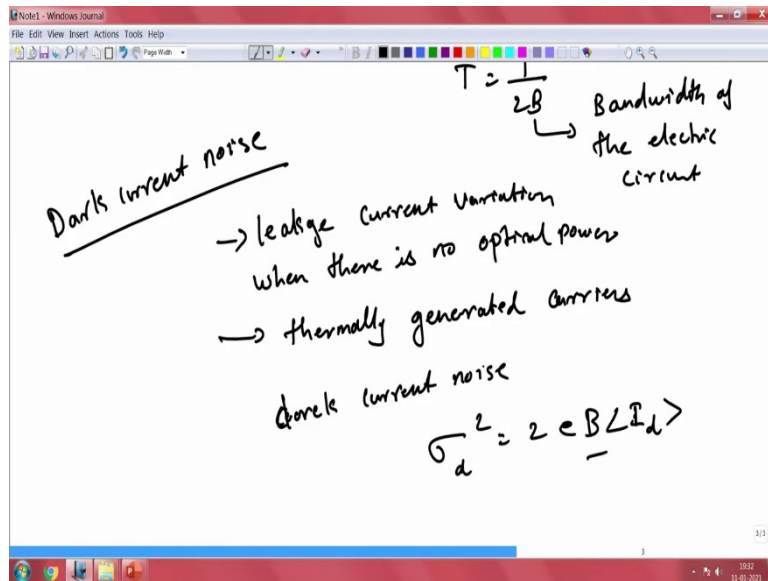 Note1 - Windows Journal
File Edit View Insert Actions Tools Help
Page Width
T = 1/2B
Bandwidth of
the electric
circuit
Dark current noise
→ leakge current variation
when there is no optical power
→ thermally generated carriers
dark current noise
σ_d² = 2eB<I_d>
3/3
3
19:32
11-01-2021